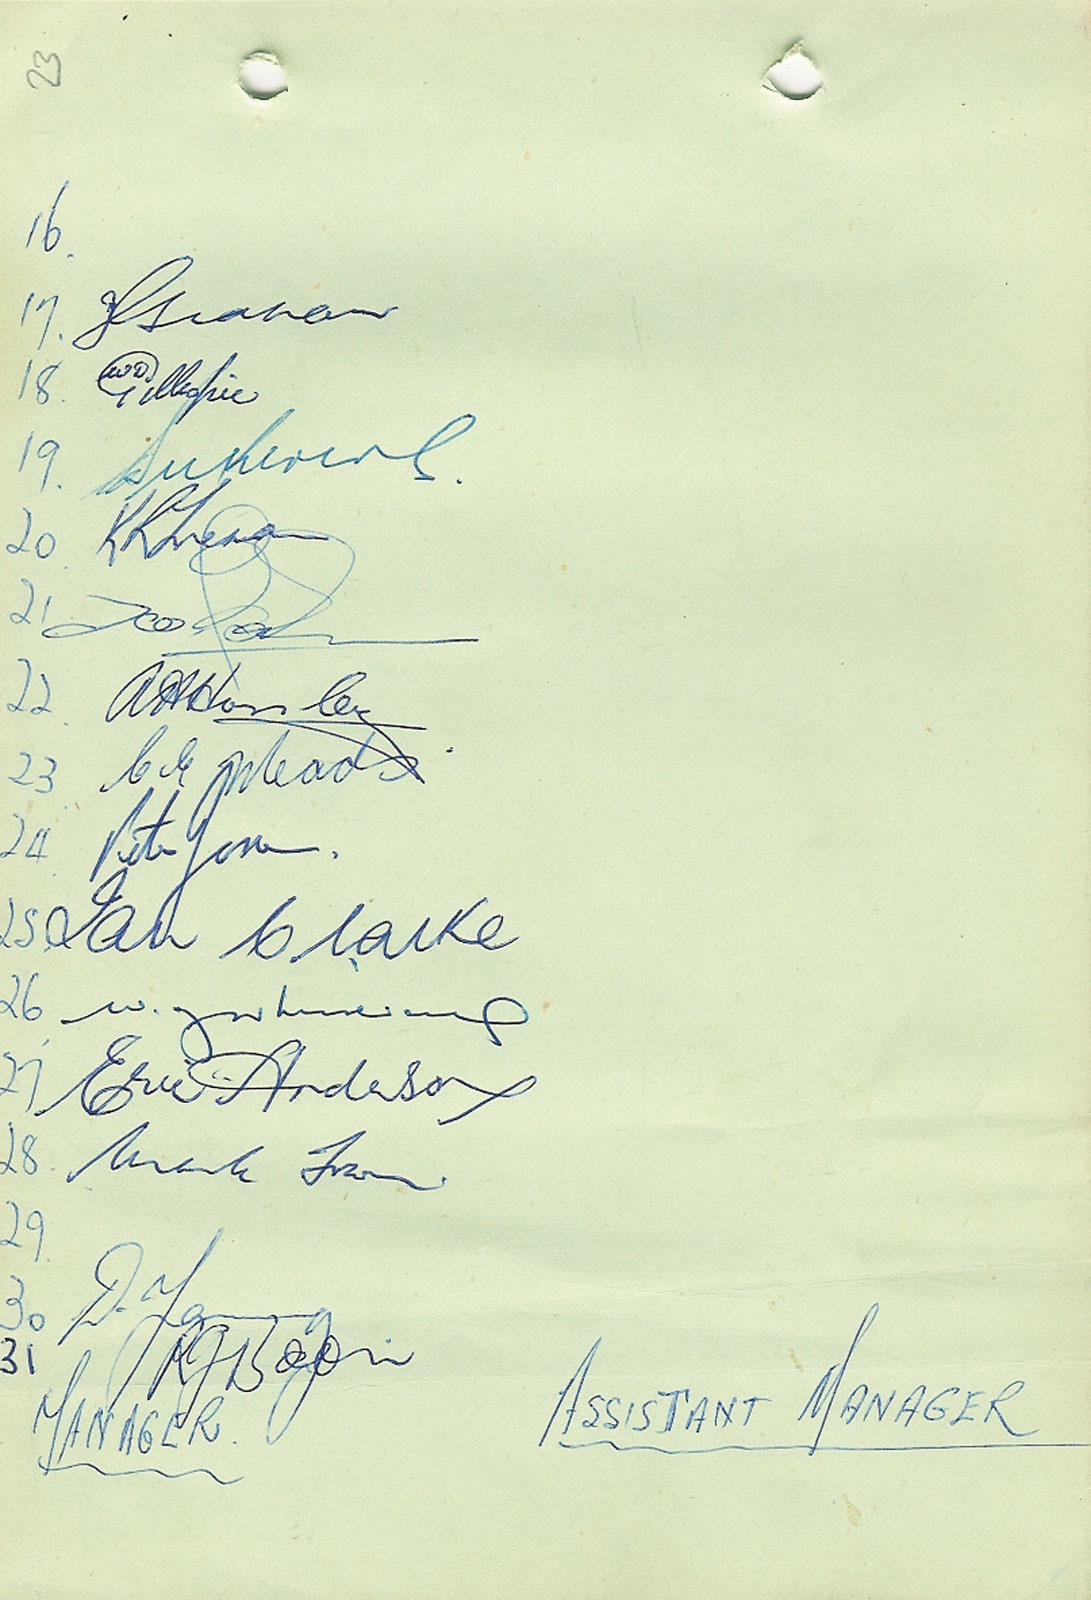 23
16.
17. J Graham
18. WD Gillespie
19.
20. KR Tremain
21
22. A H Horsley
23 C E Meads
24 Peter Jones.
25. Ian Clarke
26 W.
27 Eric Anderson
28. Mark Irwin
29.
30 D. Young
31 RJ Boon
MANAGER. ASSISTANT MANAGER